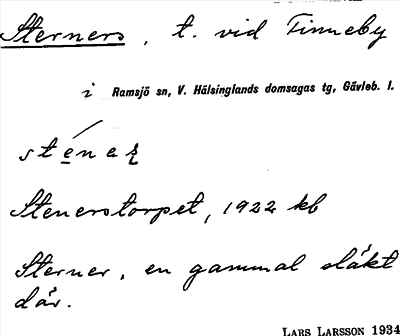 Sterners, t. vid Finneby
i Ramsjö sn, V. Hälsinglands domsagas tg, Gävleb. l.
sténaʀ
Stenerstorpet, 1922 kb
Sterner, en gammal släkt
där.
LARS LARSSON 1934